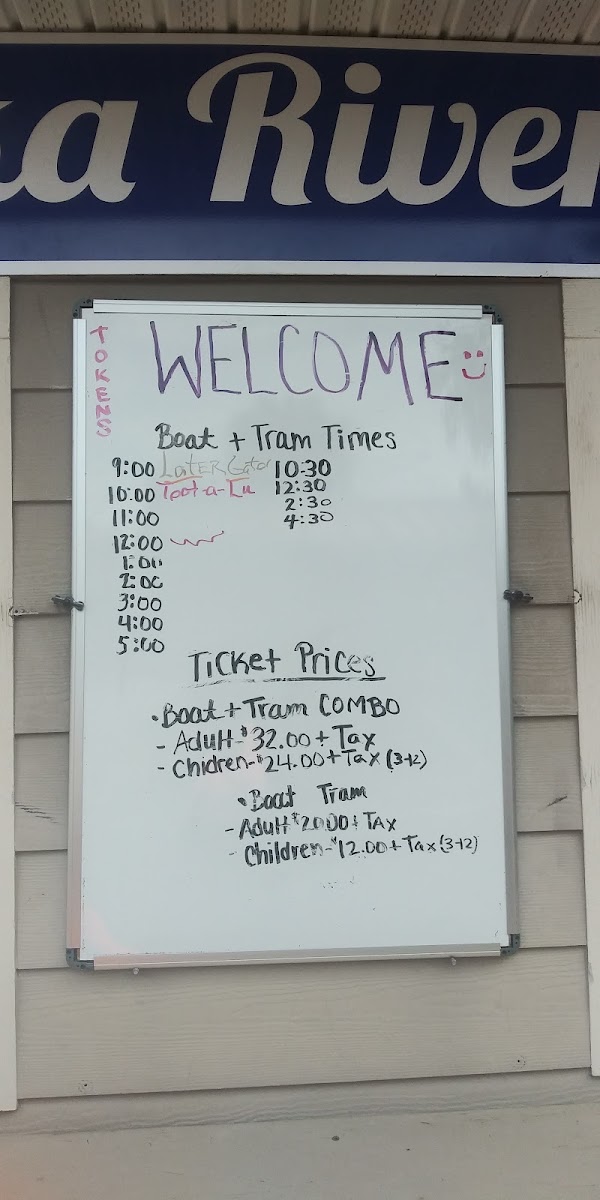 ka River
TOKENS
WELCOME
Boat + Tram Times
9:00 LatER Gator 10:30
10:00 Toot-a-Lu 12:30
11:00 2:30
12:00 4:30
1:00
2:00
3:00
4:00
5:00
Ticket Prices
• Boat + Tram COMBO
- Adult - $32.00 + Tax
- Chidren - $24.00 + Tax (3+2)
• Boat Tram
- Adult $20.00 + TAX
- Children - $12.00 + Tax (3+2)